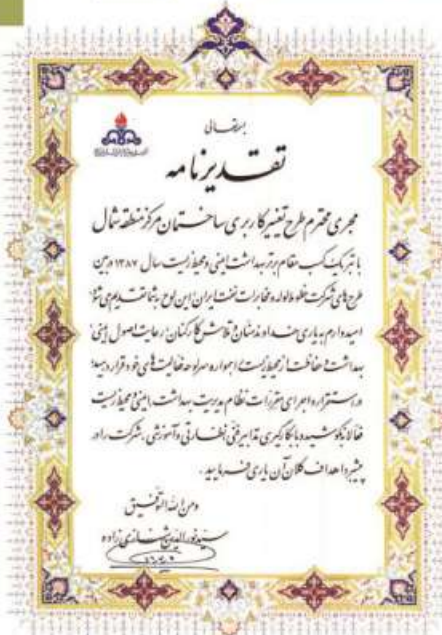 بسمه تعالی
تقدیرنامه
مجری محترم طرح تغییر کاربری ساختمان مرکز منطقه شمال
با تبریک کسب مقام برتر بهداشت ایمنی و محیط زیست سال ۱۳۸۷ در بین
طرح های شرکت خطوط لوله و مخابرات نفت ایران این لوح به شما تقدیم می شود
امیدوارم به یاری خداوند منان و تلاش کارکنان، رعایت اصول ایمنی
بهداشت و حفاظت از محیط زیست را همواره سرلوحه فعالیت های خود قرار دهید
در استقرار و اجرای مقررات نظام مدیریت بهداشت، ایمنی و محیط زیست
فعالانه کوشیده و با بکارگیری تدابیر فنی، نظارتی و آموزشی، شرکت را در
پیشبرد اهداف کلان آن یاری فرمایید.
ومن الله التوفیق
سید نورالدین شهنازی زاده